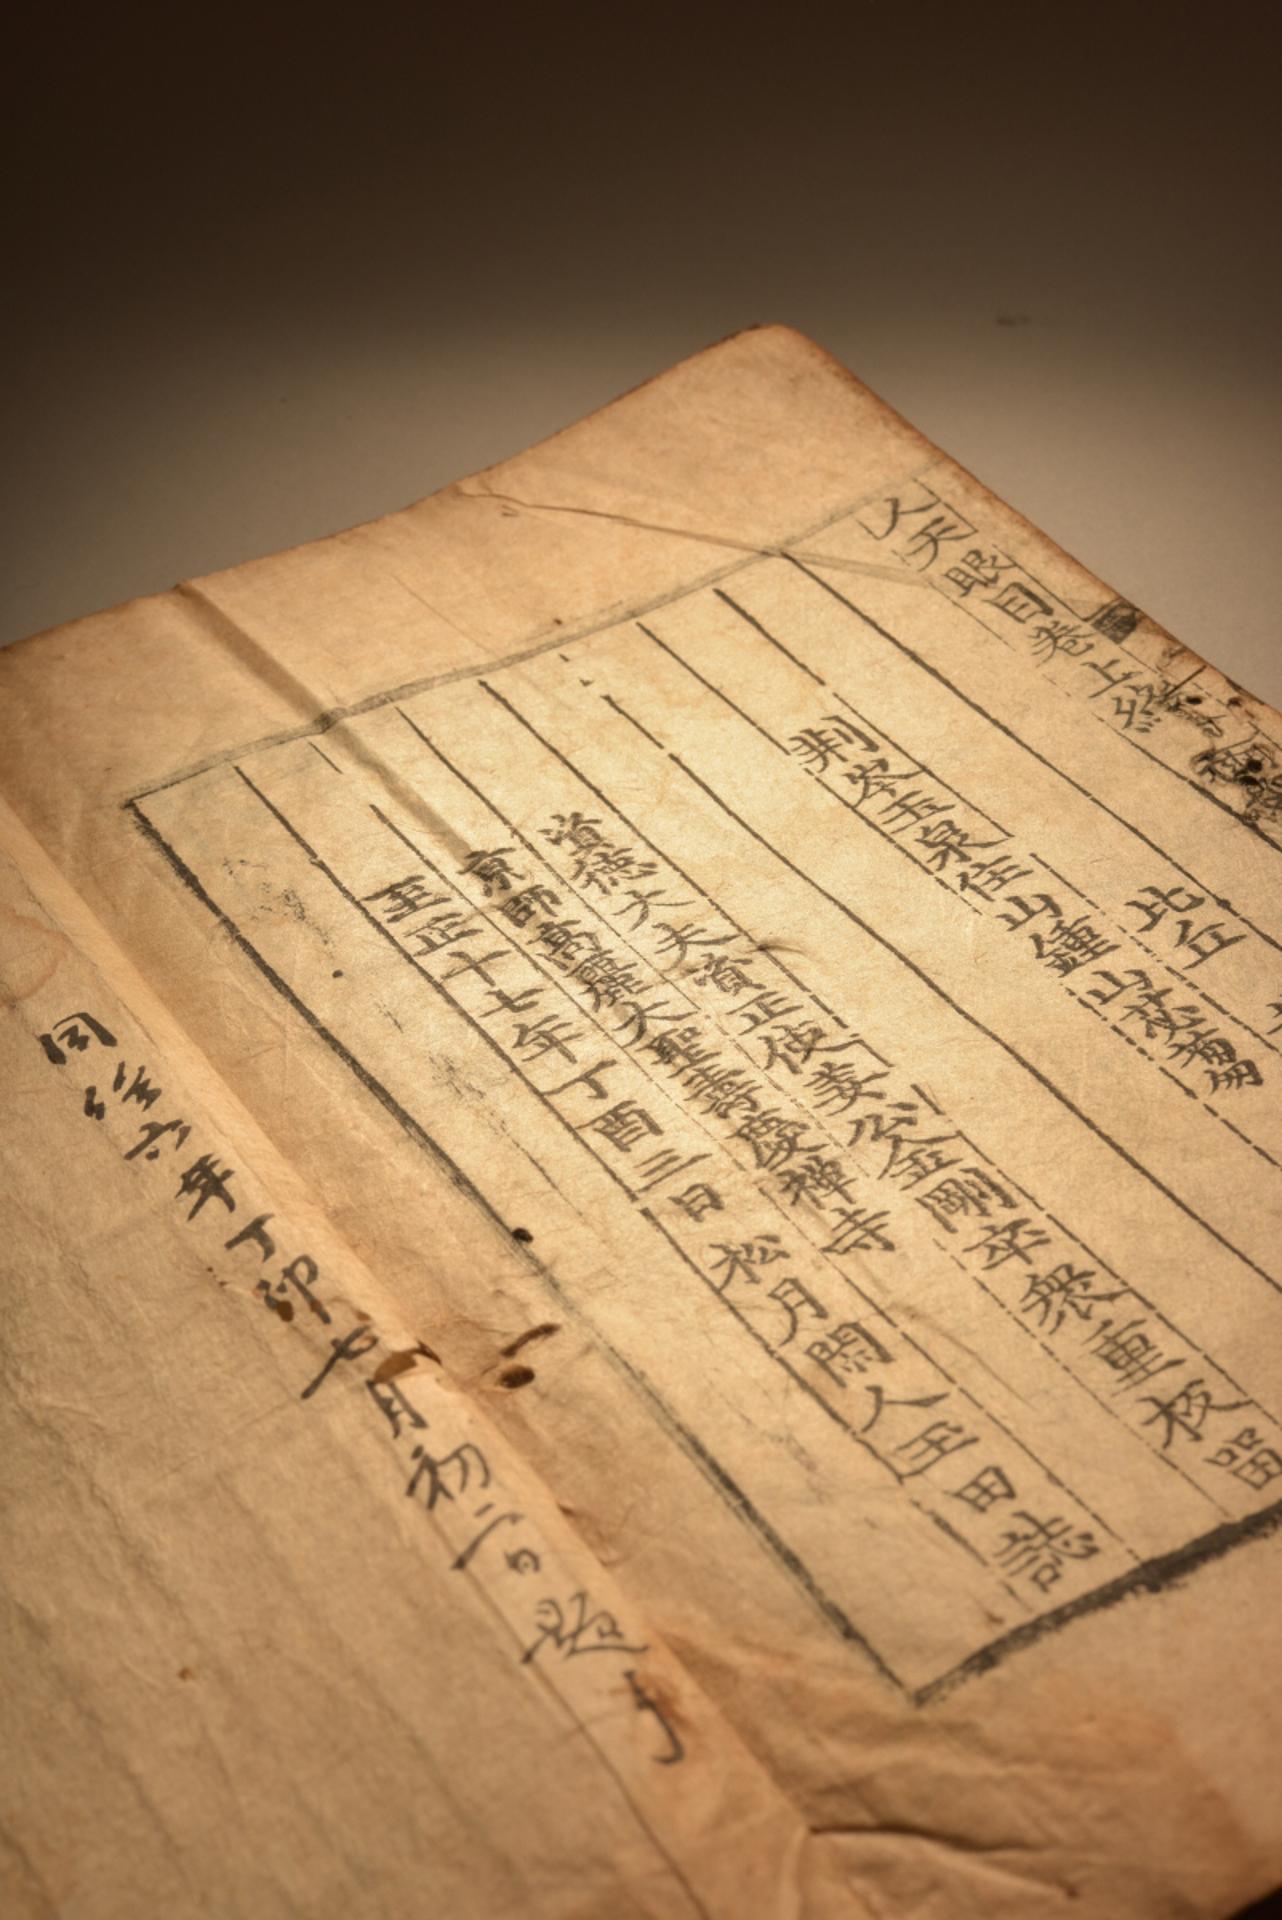 人天眼目卷上終
比丘
荆岑玉泉住山鍾山苾蒭
資德大夫資正使姜公金剛卒衆重板留
京師高麗大聖壽慶禅寺
至正十七年丁酉三日 松月閑人玉田誌
同治六年丁卯七月初二日題